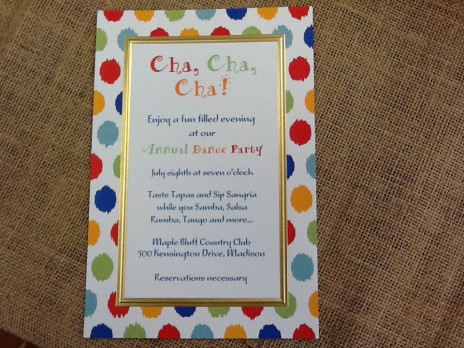 Cha, Cha,
Cha!
Enjoy a fun filled evening
at our
Annual Dance Party
July eighth at seven o'clock
Taste Tapas and Sip Sangria
while you Samba, Salsa
Rumba, Tango and more...
Maple Bluff Country Club
500 Kensington Drive, Madison
Reservations necessary